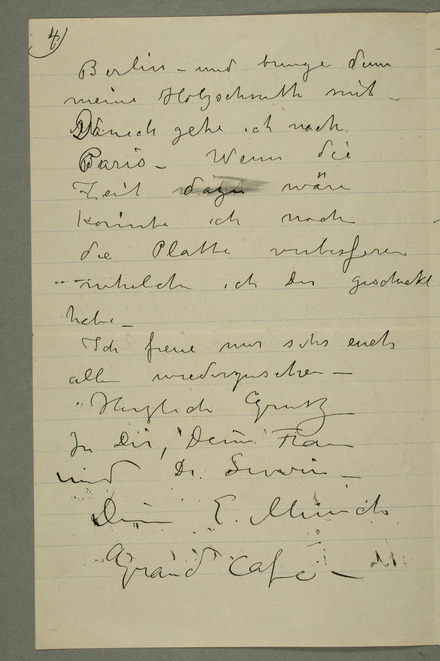 4)
Berlin – und bringe dann
meine Holzschnitte mit –
Danach gehe ich nach
Paris – Wenn die
Zeit dazu wäre
könnte ich noch
die Platte verbessern
welche ich Dir geschickt
habe –
Ich freue mir sehr euch
alle wiederzusehen –
Herzlich Gruss
zu Dir, Deine Frau
und Dr.
Dein E. Munch
Grand Café –